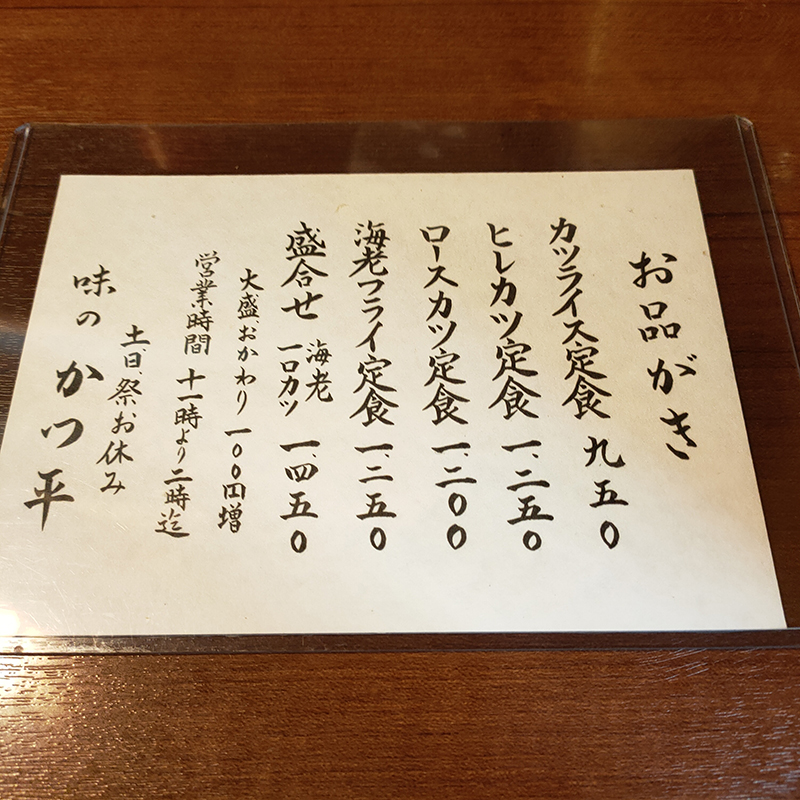 お品がき
カツライス定食 九五〇
ヒレカツ定食 一、二五〇
ロースカツ定食 一、二〇〇
海老フライ定食 一、二五〇
盛合せ 海老 一口カツ 一、四五〇
大盛、おかわり 一〇〇円増
営業時間 十一時より二時迄
土、日、祭、お休み
味のかつ平